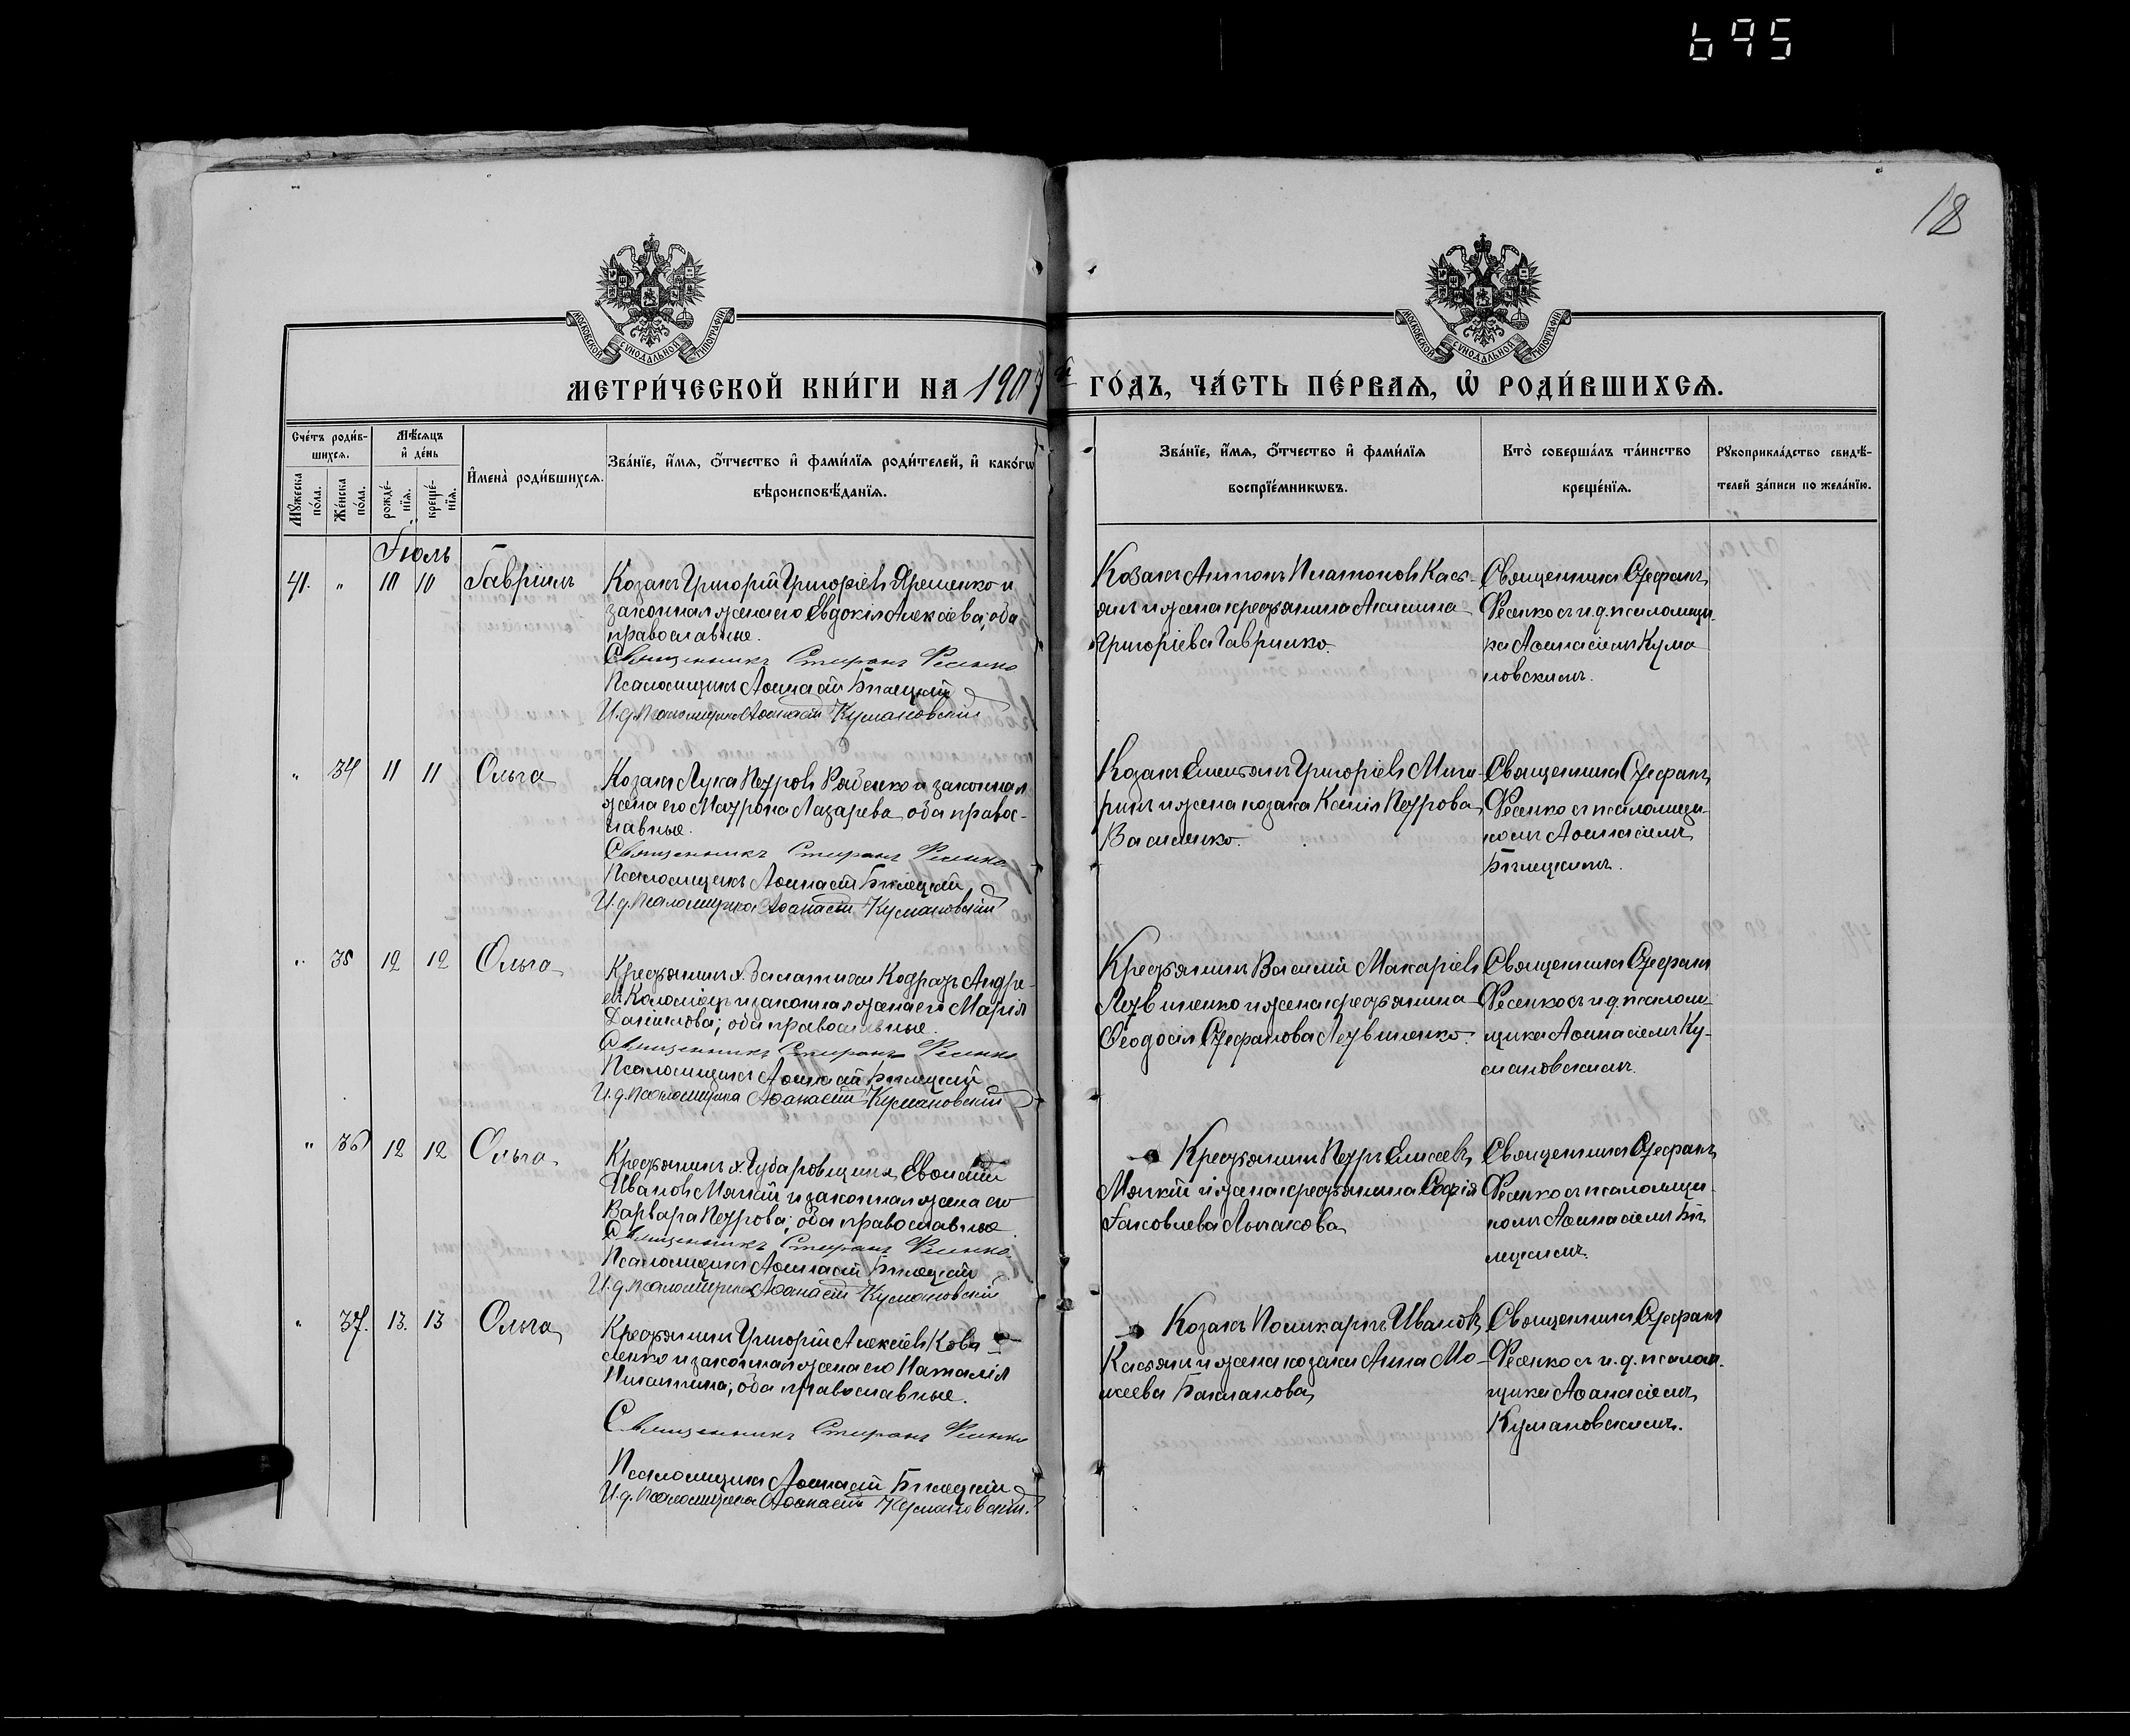 695
18
МОСКОВСКОЙ СѴНОДАЛЬНОЙ ТИПОГРАФІИ
МОСКОВСКОЙ СѴНОДАЛЬНОЙ ТИПОГРАФІИ
МЕТРИ́ЧЕСКОЙ КНИ́ГИ НА 1907 й ГО́ДЪ, ЧА́СТЬ ПЕ́РВАЯ, Ѡ РОДИ́ВШИХСЯ.
Сче́тъ роди́в-
шихся.
Мѣ́сяцъ
и҆ де́нь
Мꙋ́жеска по́ла.
Же́нска по́ла.
рожде́-нїя.
креще́-нїя.
И҆мена̀ роди́вшихся.
Зва́нїе, и҆́мя, ѻ҆́тчество и҆ фами́лїя роди́телей, и҆ како́гѡ
вѣроисповѣ́данїя.
Зва́нїе, и҆́мя, ѻ҆́тчество и҆ фами́лїя
воспрїе́мникѡвъ.
Кто̀ соверша́лъ та́инство
креще́нїя.
Рꙋкоприкла́дство свидѣ́-
телей за́писи по жела́нїю.
Іюль
41. " 10 10 Гавріилъ
Козакъ Григорій Григоріевъ Яременко и
законная жена его Евдокія Алексѣева; оба
православные.
Священникъ Стефанъ Фесенко
Псаломщикъ Аѳанасій Бѣлецкій
И. д. псаломщика Аѳанасій Кумановскій
Козакъ Антонъ Платоновъ Кась-
янъ и жена крестьянина Акилина
Григоріева Гавриленко.
Священникъ Стефанъ
Фесенко съ и. д. псаломщи-
ка Аѳанасіемъ Кума
новскимъ.
" 34 11 11 Ольга
Козакъ Лука Петровъ Рябенко и законная
жена его Матрона Лазарева, оба правос-
лавные.
Священникъ Стефанъ Фесенко
Псаломщикъ Аѳанасій Бѣлецкій
И. д. псаломщика Аѳанасій Кумановскій
Козакъ Емельянъ Григоріевъ
и жена козака Ксенія Петрова
Василенко.
Священникъ Стефанъ
Фесенко съ псаломщи-
комъ Аѳанасіемъ
Бѣлецкимъ.
" 35 12 12 Ольга
Крестьянинъ х. Кодратъ Андре-
евъ Коломіецъ и законная жена его Марія
Даніилова; оба православные.
Священникъ Стефанъ Фесенко
Псаломщикъ Аѳанасій Бѣлецкій
И. д. псаломщика Аѳанасій Кумановскій
Крестьянинъ Василій Макаріевъ
Литвиненко и жена крестьянина
Ѳеодосія Стефанова Литвиненко.
Священникъ Стефанъ
Фесенко съ и. д. псалом-
щика Аѳанасіемъ Ку-
мановскимъ.
" 36 12 12 Ольга
Крестьянинъ х. Губаровщина
Ивановъ Мягкій и законная жена его
Варвара Петрова; оба православные.
Священникъ Стефанъ Фесенко
Псаломщикъ Аѳанасій Бѣлецкій
И. д. псаломщика Аѳанасій Кумановскій
Крестьянинъ Петръ Елисеевъ
Мягкій и жена крестьянина Софія
Іаковлева
Священникъ Стефанъ
Фесенко съ псаломщи-
комъ Аѳанасіемъ Бѣ
лецкимъ.
" 37. 13. 13 Ольга
Крестьянинъ Григорій Алексіевъ Кова
ленко и законная жена его Наталія
Никитина; оба православные.
Священникъ Стефанъ Фесенко
Псаломщикъ Аѳанасій Бѣлецкій
И. д. псаломщика Аѳанасій Кумановскій.
Козакъ Поликарпъ Ивановъ
Касьянъ и жена козака Анна Мо-
икеева Бакланова
Священникъ Стефанъ
Фесенко съ и. д. псалом-
щика Аѳанасіемъ
Кумановскимъ.